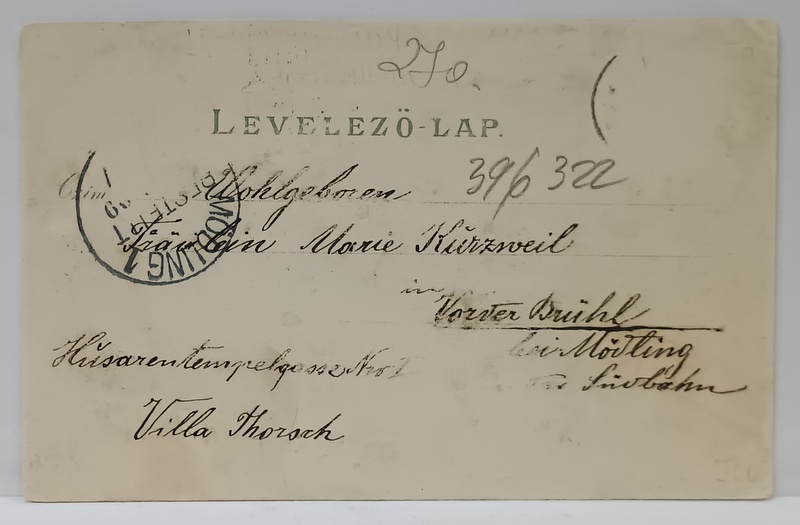 270.
LEVELEZŐ-LAP.
396 322
Wohlgeboren
Fräulein Marie Kurzweil
in
Vorder Brühl
bei Mödling
Südbahn
Husarentempelgasse Nro
Villa Thorsch
MÖDLING 1